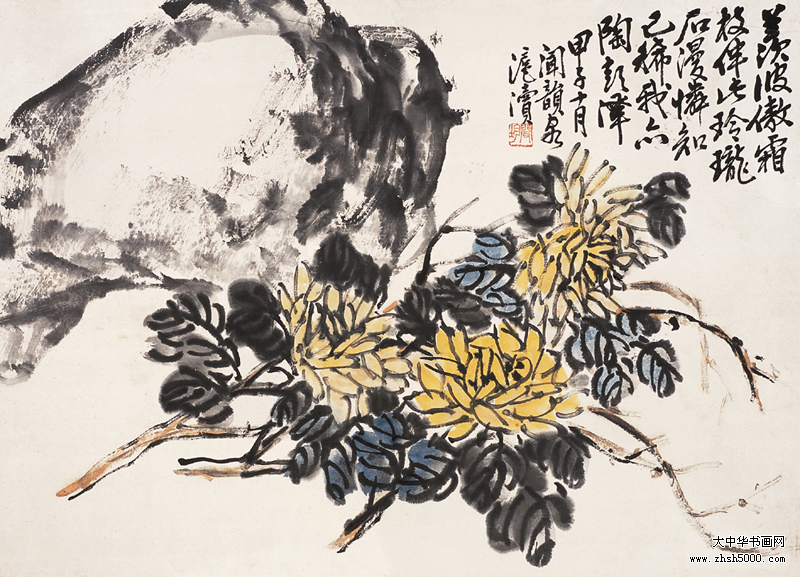 羡彼傲霜
枝伴此玲瓏
石漫憐知
己稀我亦
陶彭澤
甲子十月
聞韻
滬瀆
大中华书画网
www.zhsh5000.com